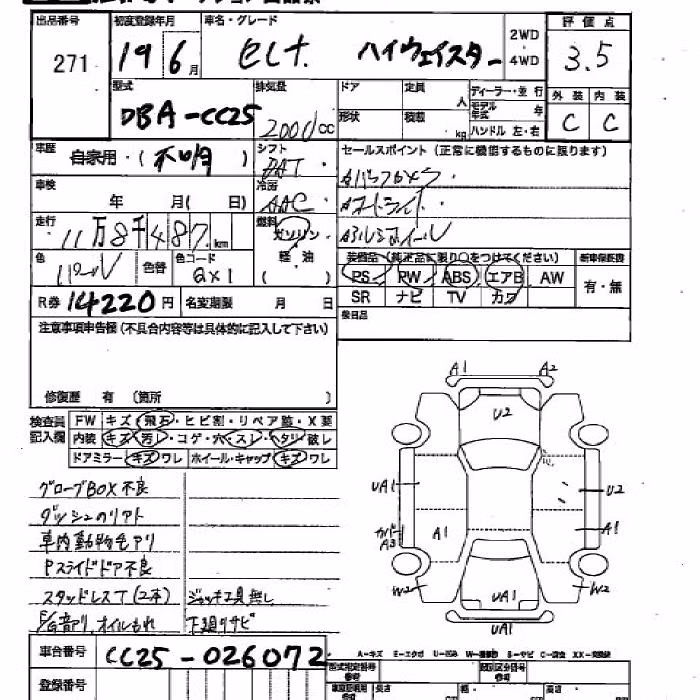 出品番号 271
初度登録年月 19 6月
車名・グレード セレナ ハイウェイスター
2WD
4WD
評価点 3.5
型式 DBA-CC25
排気量 2000cc
ドア
定員 人
形状
積載 kg
ディーラー・並行
モデル年式 年
ハンドル 左・右
外装 内装
C C
車歴 自家用・(不明)
シフト DAT
セールスポイント (正常に機能するものに限ります)
車検 年 月( 日)
冷房 AAC
オートライト
走行 11万8千487km
燃料 ガソリン
軽油
( )
アルミホイール
色 パール
色替
色コード QX1
装備品 (純正品に限り○をつけてください)
新車保証書
PS PW ABS エアB AW
SR ナビ TV カワ
有・無
R券 14220円
名変期限 月 日
後日品
注意事項申告欄 (不具合内容等は具体的に記入して下さい)
修復歴 有 (箇所 )
検査員記入欄
FW キズ・飛石・ヒビ割・リペア跡・X要
内装 キズ・汚れ・コゲ・穴・スレ・ヘタリ・破レ
ドアミラー キズ・ワレ ホイール・キャップ キズ・ワレ
グローブBOX不良
ダッシュのリアト
車内動物毛アリ
Pスライドドア不良
スタッドレスT(2本) ジャッキ工具無し
F/G音アリ,オイルもれ 下廻りサビ
A1 A2
U2
UA1 U2
カバーA3 A1 A1
W2 UA1 W2
UA1
車台番号 CC25-026072
登録番号
A-キズ E-エクボ U-凹み W-補修跡 S-サビ C-腐食 XX-交換跡
型式指定番号
類別区分番号
長さ 幅 高さ